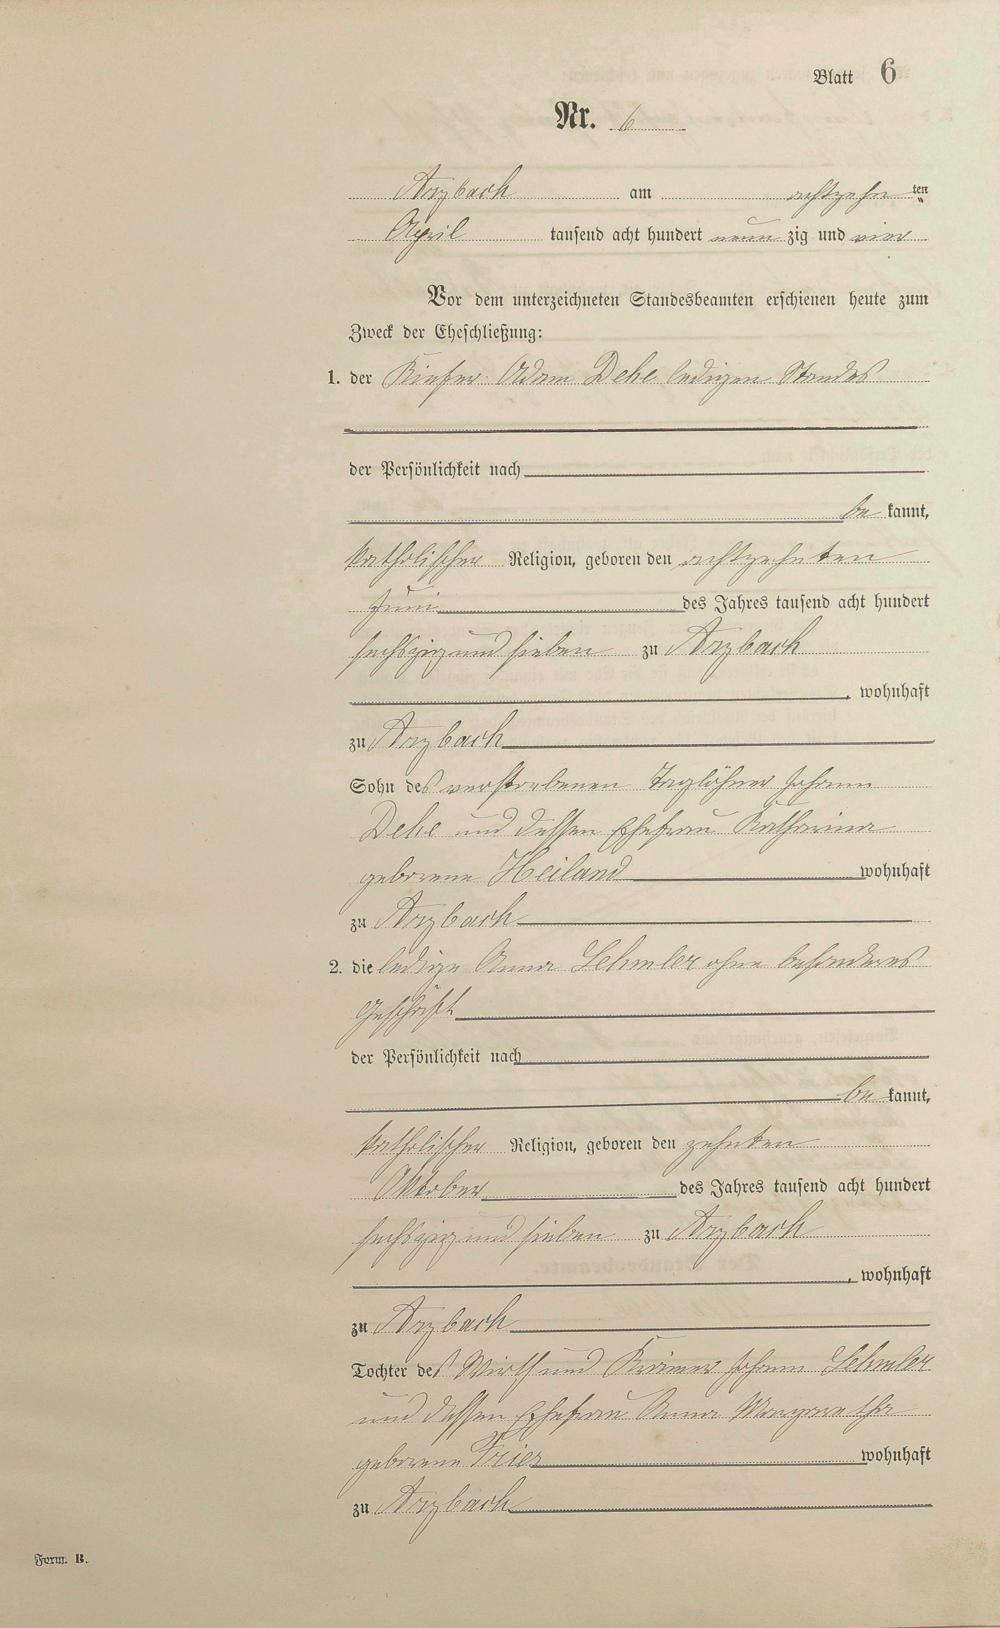 Blatt 6
Nr. 6
Arzbach am achtzehn ten
April tausend acht hundert neun zig und vier
Vor dem unterzeichneten Standesbeamten erschienen heute zum
Zweck der Eheschließung:
1. der Küfer Adam Dehe ledigen Standes
der Persönlichkeit nach
be kannt,
katholischer Religion, geboren den achtzehnten
Juni des Jahres tausend acht hundert
sechszig und sieben zu Arzbach
, wohnhaft
zu Arzbach
Sohn des verstorbenen Taglöhner Johann
Dehe und dessen Ehefrau Katharina
geborene Heiland wohnhaft
zu Arzbach
2. die ledige Anna Lehmler ohne besonderes
Geschäft
der Persönlichkeit nach
be kannt,
katholischer Religion, geboren den zehnten
Oktober des Jahres tausend acht hundert
sechszig und sieben zu Arzbach
, wohnhaft
zu Arzbach
Tochter des Wirth und Krämer Johann Lehmler
und dessen Ehefrau Anna Margaretha
geborene Trier wohnhaft
zu Arzbach
Form. B.